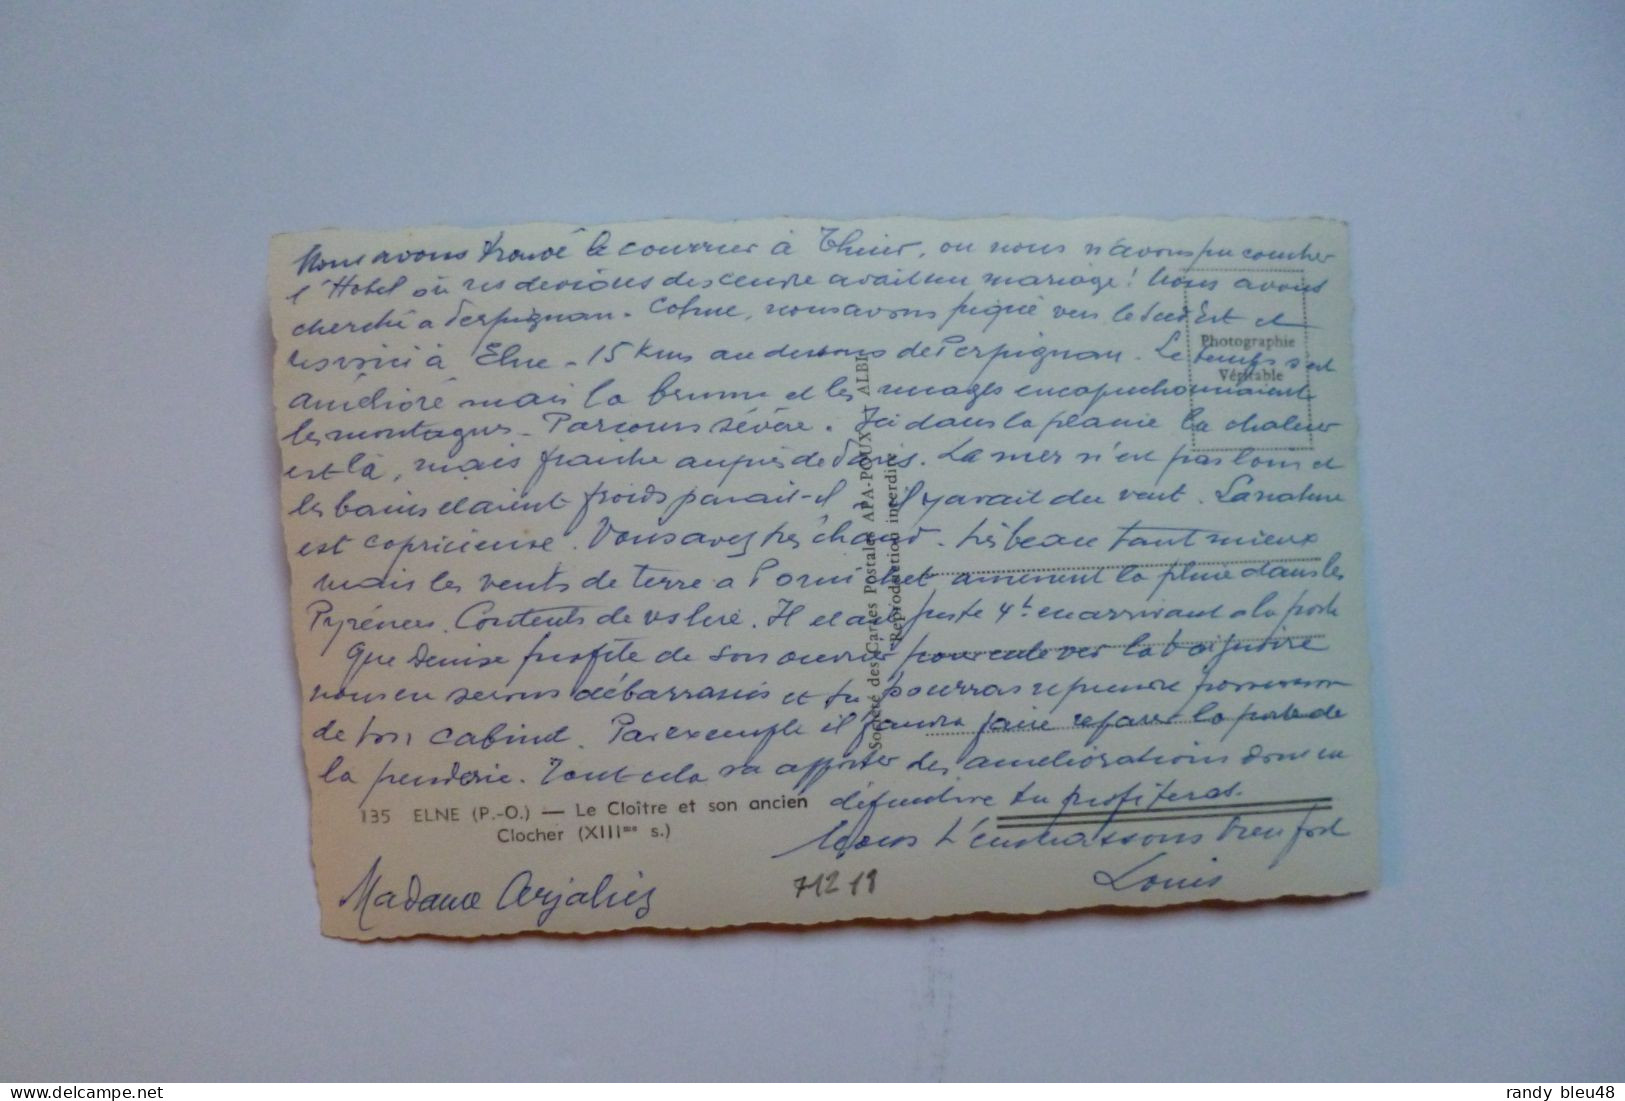 Nous avons trouvé le courrier à Thuir, ou nous n'avons pu coucher
l'Hotel où ns devions descendre avait un mariage! Nous avons
cherché a Perpignan. nous avons piqué vers le Sud Est et
ns voici à Elne - 15 kms au dessous de Perpignan. Le temps s'est
amélioré mais la brume et les nuages encapuchonnaient
les montagnes - Parcours sévère. Ici dans la plaine la chaleur
est là, mais fraiche auprès de Paris. La mer n'est pas loin et
les bains étaient froids parait-il il y avait du vent. La nature
est capricieuse. Vous avez très chaud. très beau tant mieux
mais les vents de terre a Pornichet amènent la pluie dans les
Pyrénées. Contents de vs lire. Il était juste 4h en arrivant a la poste
Que Denise profite de son ouvrier pour enlever la baignoire
nous en serons débarrassés et tu pourras reprendre possession
de ton cabinet. Par exemple il faudra faire réparer la porte de
la penderie. Tout cela va apporter des améliorations dont en
définitive tu profiteras.
Nous t'embrassons bien fort
Louis
Photographie
Véritable
Société des Cartes Postales APA-POUX - ALBI
Reproduction interdite
135 ELNE (P.-O.) — Le Cloître et son ancien
Clocher (XIIIme s.)
Madame
71219
randy_bleu48